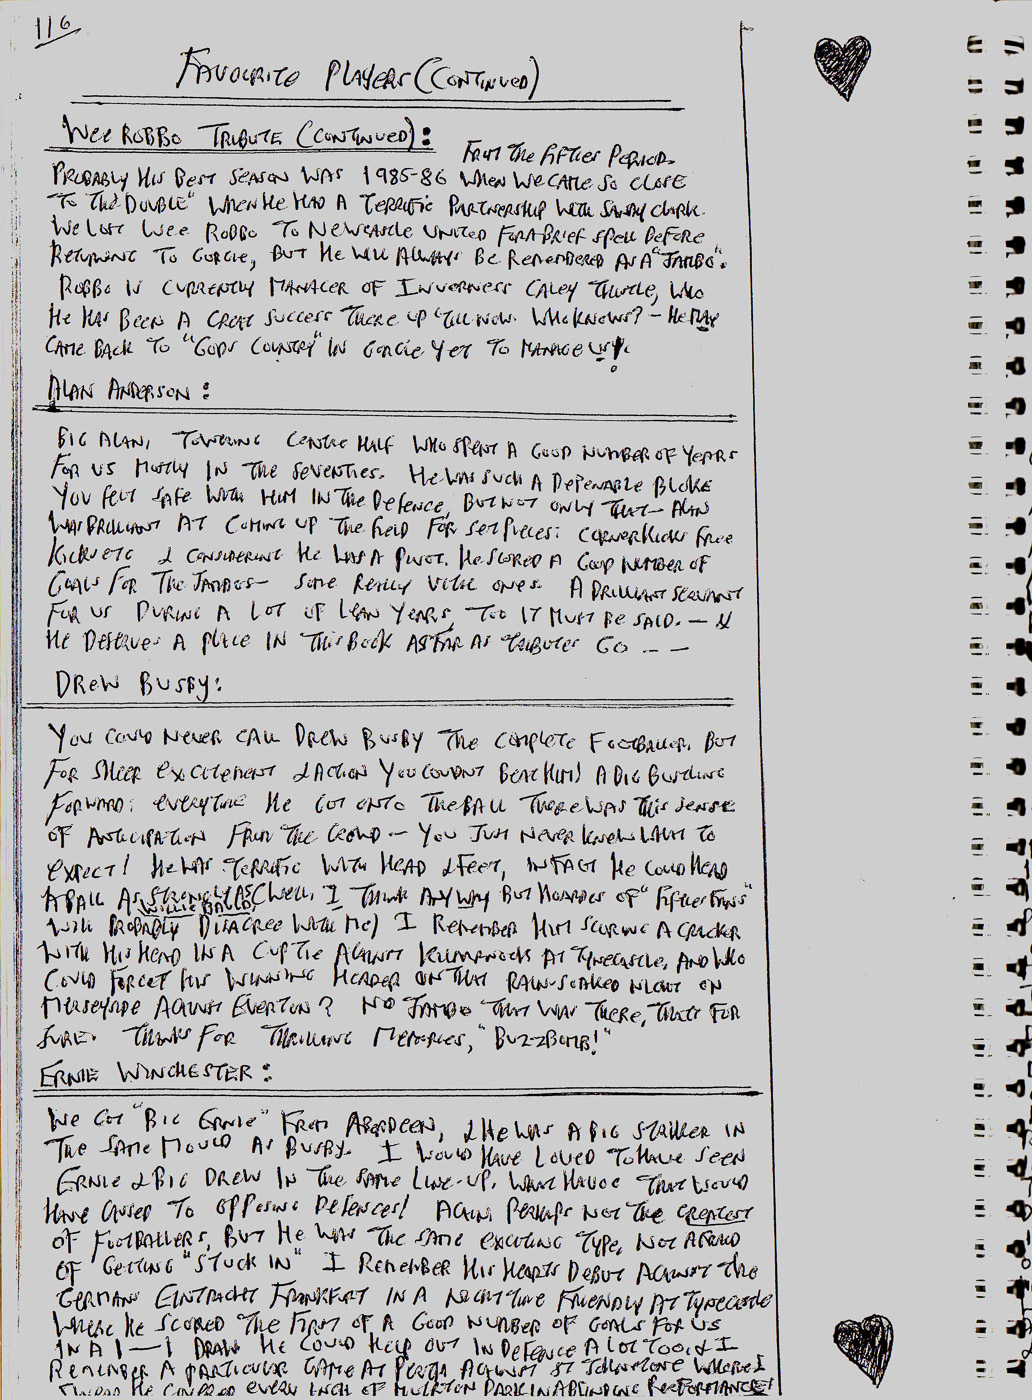 116
FAVOURITE PLAYERS (CONTINUED)
WEE ROBBO TRIBUTE (CONTINUED):
FROM THE FIFTIES PERIOD.
PROBABLY HIS BEST SEASON WAS 1985-86 WHEN WE CAME SO CLOSE
TO THE "DOUBLE" WHEN HE HAD A TERRIFIC PARTNERSHIP WITH SANDY CLARK.
WE LOST WEE ROBBO TO NEWCASTLE UNITED FOR A BRIEF SPELL BEFORE
RETURNING TO GORGIE, BUT HE WILL ALWAYS BE REMEMBERED AS A "JAMBO".
ROBBO IS CURRENTLY MANAGER OF INVERNESS CALEY THISTLE, WHO
HE HAS BEEN A GREAT SUCCESS THERE UP 'TILL NOW. WHO KNOWS? - HE MAY
COME BACK TO "GODS COUNTRY" IN GORGIE YET TO MANAGE US!
ALAN ANDERSON:
BIG ALAN, TOWERING CENTRE HALF WHO SPENT A GOOD NUMBER OF YEARS
FOR US MOSTLY IN THE SEVENTIES. HE WAS SUCH A DEPENABLE BLOKE
YOU FELT SAFE WITH HIM IN THE DEFENCE, BUT NOT ONLY THAT - ALAN
WAS BRILLIANT AT COMING UP THE FIELD FOR SET PIECES: CORNER KICKS FREE
KICKS ETC & CONSIDERING HE WAS A PIVOT. HE SCORED A GOOD NUMBER OF
GOALS FOR THE JAMBOS - SOME REALLY VITAL ONES. A BRILLIANT SERVANT
FOR US DURING A LOT OF LEAN YEARS, TOO IT MUST BE SAID. - &
HE DESERVES A PLACE IN THIS BOOK AS FAR AS TRIBUTES GO - -
DREW BUSBY:
YOU COULD NEVER CALL DREW BUSBY THE COMPLETE FOOTBALLER, BUT
FOR SHEER EXCITEMENT & ACTION YOU COUDNT BEAT HIM! A BIG BUSTLING
FORWARD: EVERYTIME HE GOT ONTO THE BALL THERE WAS THIS SENSE
OF ANTICIPATION FROM THE CROWD - YOU JUST NEVER KNEW WHAT TO
EXPECT! HE WAS TERRIFIC WITH HEAD & FEET, IN FACT HE COULD HEAD
A BALL AS STRONGLY AS WILLIE BAULD (WELL, I THINK ANYWAY BUT HOARDES OF "FIFTIES FANS"
WILL PROBABLY DISAGREE WITH ME) I REMEMBER HIM SCORING A CRACKER
WITH HIS HEAD IN A CUP TIE AGAINST KILMARNOCK AT TYNECASTLE, AND WHO
COULD FORGET HIS WINNING HEADER ON THAT RAIN-SOAKED NIGHT ON
MERSEYSIDE AGAINST EVERTON? NO JAMBO THAT WAS THERE, THAT'S FOR
SURE. THANKS FOR THRILLING MEMORIES, "BUZZBOMB!"
ERNIE WINCHESTER:
WE GOT "BIG ERNIE" FROM ABERDEEN, & HE WAS A BIG STRIKER IN
THE SAME MOULD AS BUSBY. I WOULD HAVE LOVED TO HAVE SEEN
ERNIE & BIG DREW IN THE SAME LINE-UP. WHAT HAVOC THAT WOULD
HAVE CAUSED TO OPPOSING DEFENCES! AGAIN, PERHAPS NOT THE GREATEST
OF FOOTBALLERS, BUT HE WAS THE SAME EXCITING TYPE, NOT AFRAID
OF GETTING "STUCK IN" I REMEMBER HIS HEARTS DEBUT AGAINST THE
GERMANS EINTRACHT FRANKFURT IN A NIGHT TIME FRIENDLY AT TYNECASTLE
WHERE HE SCORED THE FIRST OF A GOOD NUMBER OF GOALS FOR US
IN A 1-1 DRAW. HE COULD HELP OUT IN DEFENCE A LOT TOO, & I
REMEMBER A PARTICULAR GAME AT PERTH AGAINST ST JOHNSTONE WHERE I
HE COVERED EVERY INCH OF MUIRTON PARK IN A BLINDING PERFORMANCE!